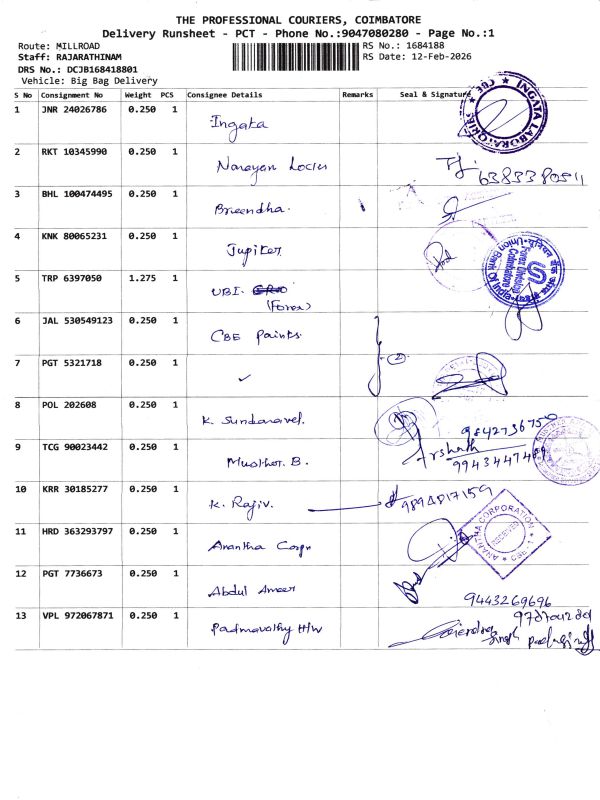 THE PROFESSIONAL COURIERS, COIMBATORE
Delivery Runsheet - PCT - Phone No.:9047080280 - Page No.:1
Route: MILLROAD
RS No.: 1684188
Staff: RAJARATHINAM
RS Date: 12-Feb-2026
DRS No.: DCJB168418801
Vehicle: Big Bag Delivery
S No Consignment No Weight PCS Consignee Details Remarks Seal & Signature
1 JNR 24026786 0.250 1 Ingata
INGATA LABORATORIES CBE
2 RKT 10345990 0.250 1 Narayan
6383380511
3 BHL 100474495 0.250 1 Breendha.
4 KNK 80065231 0.250 1 Jupiter
5 TRP 6397050 1.275 1 UBI.
(Forex)
Union Bank Of India
Coimbatore
6 JAL 530549123 0.250 1 CBE Paints.
2
7 PGT 5321718 0.250 1 ✓
8 POL 202608 0.250 1 K. Sundaravel.
9842736750
9 TCG 90023442 0.250 1 B.
Arshath
9943447489
10 KRR 30185277 0.250 1 K. Rajiv.
11 HRD 363293797 0.250 1 Anantha Corpn
ANANTHA CORPORATION
RECEIVED
CBE-1
12 PGT 7736673 0.250 1 Abdul Ameer
9443269696
13 VPL 972067871 0.250 1 Padmavathy H/W
Singh